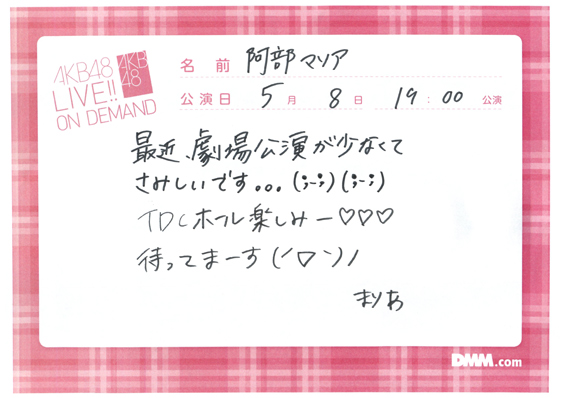 AKB48
LIVE!!
ON DEMAND
AKB
48
名 前 阿部マリア
公演日 5月 8日 19:00 公演
最近、劇場公演が少なくて
さみしいです...(;-;)(;-;)
TDCホール楽しみー♡♡♡
待ってまーす(´▽`)ノ
まりあ
DMM.com